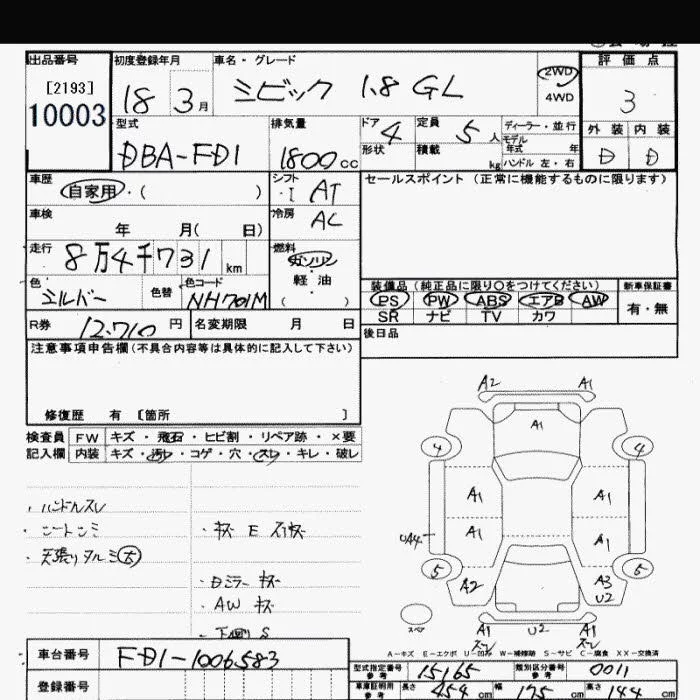 出品番号
[2193]
10003
初度登録年月
18 3月
車名・グレード
シビック 1.8 GL
2WD
4WD
評価点
3
外装 内装
D D
型式
DBA-FD1
排気量
1800cc
ドア 4
形状
定員 5人
積載 kg
ディーラー・並行
モデル年式 年
ハンドル 左・右
車歴
自家用・( )
シフト
・I AT
セールスポイント(正常に機能するものに限ります)
車検
年 月( 日)
冷房
AC
走行
8万4千731km
燃料
ガソリン
軽油
( )
色
シルバー
色替
色コード
NH701M
装備品(純正品に限り○をつけてください)
PS PW ABS エアB AW
SR ナビ TV カワ
新車保証書
有・無
R券
12,710円
名変期限 月 日
後日品
注意事項申告欄(不具合内容等は具体的に記入して下さい)
修復歴 有 [箇所 ]
検査員 FW キズ・飛石・ヒビ割・リペア跡・×要
記入欄 内装 キズ・汚レ・コゲ・穴・スレ・キレ・破レ
・ハンドルスレ
・シートシミ
・天張りタルミ大
・キズ E スリキズ
・Dミラー キズ
・AW キズ
・下廻り S
A2 A1
A1
4 4
A1 A1
UA4
A1 A1
5 5
A2 A3
U2
スペア
A1 U2 A1
スレ スレ
A－キズ E－エクボ U－凹み W－補修跡 S－サビ C－腐食 XX－交換済
車台番号
FD1-1006583
登録番号
型式指定番号 参考 15165
類別区分番号 参考 0011
車庫証明用 参考 長さ 454cm 幅 175cm 高さ 144cm